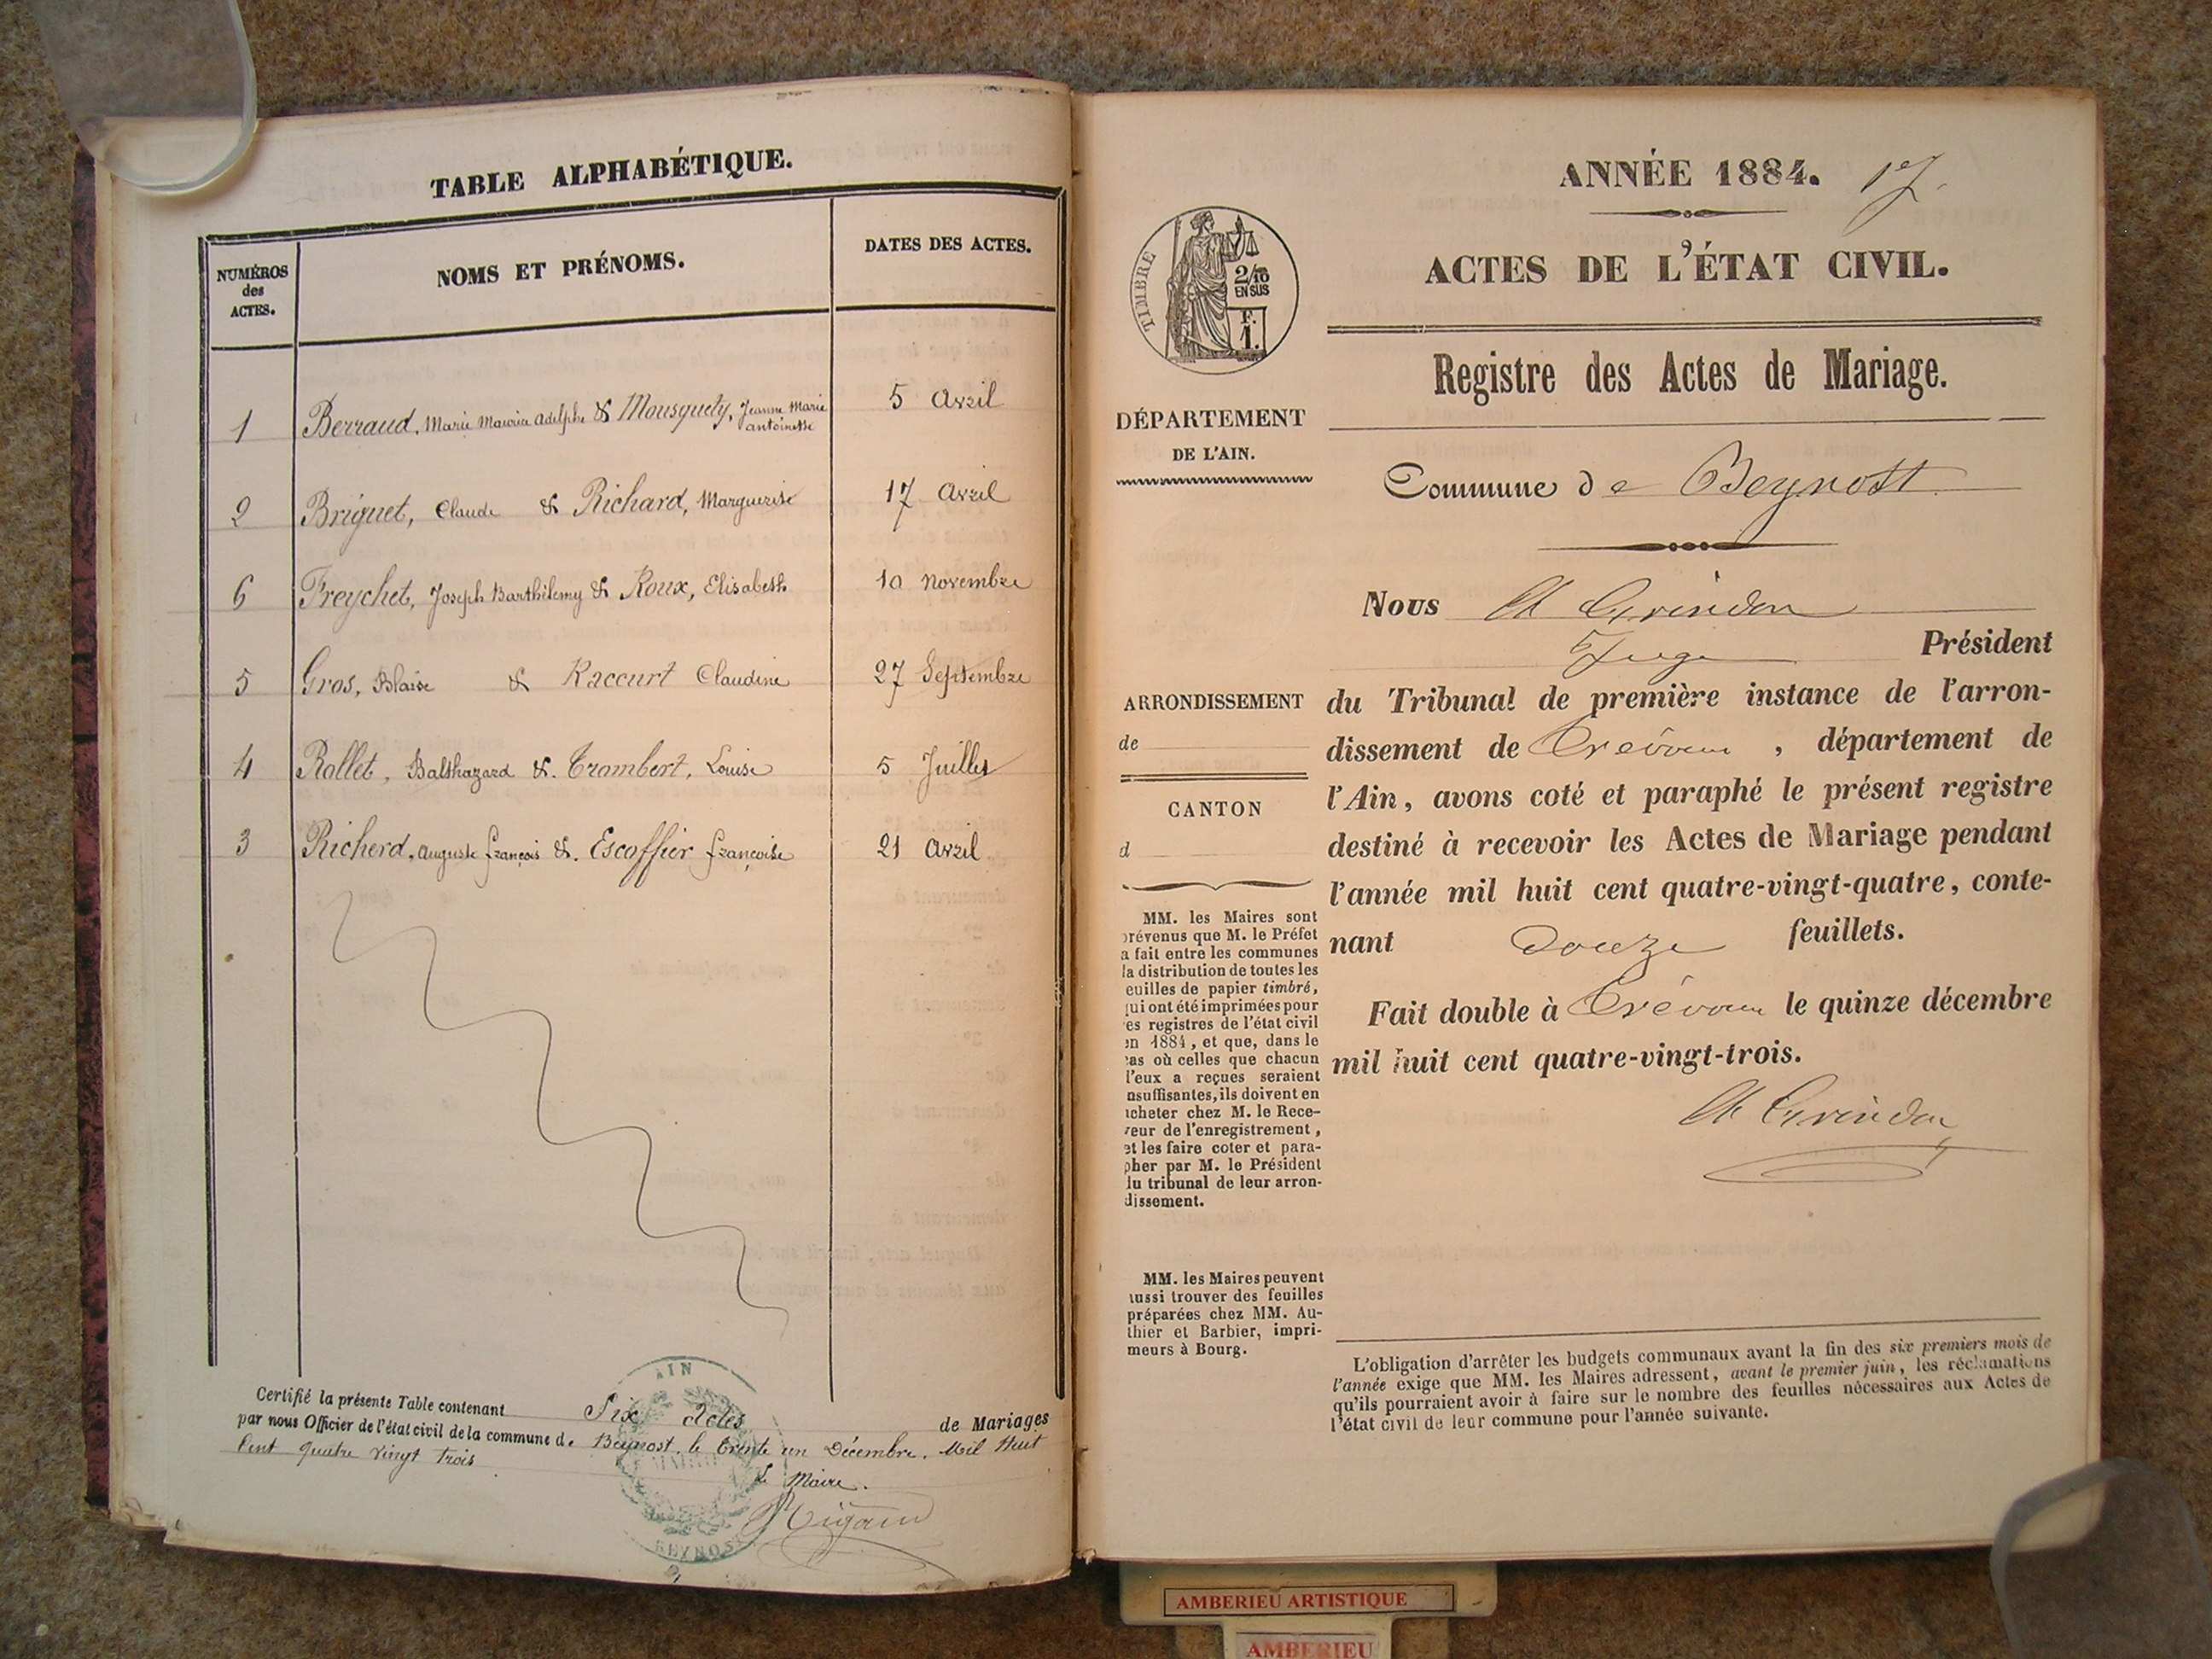 TABLE ALPHABÉTIQUE.
NUMÉROS
des
ACTES.
NOMS ET PRÉNOMS.
DATES DES ACTES.
1 Berraud, Marie Maurice Adolphe & Mousquety, Jeanne Marie antoinette 5 Avril
2 Briguet, Claude & Richard, Marguerite 17 Avril
6 Freychet, Joseph Barthélemy & Roux, Elisabeth 10 novembre
5 Gros, Blaise & Raccurt Claudine 27 Septembre
4 Rollet, Balthazard & Trambert, Louise 5 Juillet
3 Richerd, auguste françois & Escoffier françoise 21 Avril
Certifié la présente Table contenant Six Actes de Mariages
par nous Officier de l'état civil de la commune de Beynost, le trente un Décembre, Mil Huit
Cent quatre vingt trois
Le Maire.
AIN
MAIRIE
BEYNOST
ANNÉE 1884.
ACTES DE L'ÉTAT CIVIL.
TIMBRE
2/10
EN SUS
F.
1.
Registre des Actes de Mariage.
DÉPARTEMENT
DE L'AIN.
Commune de Beynost
Nous Ch Grindon
Juge Président
ARRONDISSEMENT
de
CANTON
d
du Tribunal de première instance de l'arron-
dissement de Trévoux, département de
l'Ain, avons coté et paraphé le présent registre
destiné à recevoir les Actes de Mariage pendant
l'année mil huit cent quatre-vingt-quatre, conte-
nant Douze feuillets.
Fait double à Trévoux le quinze décembre
mil huit cent quatre-vingt-trois.
Ch Grindon
MM. les Maires sont
prévenus que M. le Préfet
a fait entre les communes
la distribution de toutes les
feuilles de papier timbré,
qui ont été imprimées pour
les registres de l'état civil
en 1884, et que, dans le
cas où celles que chacun
d'eux a reçues seraient
insuffisantes, ils doivent en
acheter chez M. le Rece-
veur de l'enregistrement,
et les faire coter et para-
pher par M. le Président
du tribunal de leur arron-
dissement.
MM. les Maires peuvent
aussi trouver des feuilles
préparées chez MM. Au-
thier et Barbier, impri-
meurs à Bourg.
L'obligation d'arrêter les budgets communaux avant la fin des six premiers mois de
l'année exige que MM. les Maires adressent, avant le premier juin, les réclamations
qu'ils pourraient avoir à faire sur le nombre des feuilles nécessaires aux Actes de
l'état civil de leur commune pour l'année suivante.
AMBERIEU ARTISTIQUE
AMBERIEU